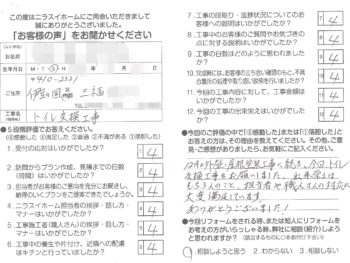 この度はニラスイホームにご用命いただきまして
誠にありがとうございます。
「お客様の声」をお聞かせください
ご住所
伊豆の国
三福
工事名
トイレ交換工事
●5段階評価でお答えください。
⑤感動した ④満足 ③普通 ②不満がある ①落胆した
1. 受付の応対はいかがでしたか
4
2. 訪問からプラン作成、見積までの日数
(時間)はいかがでしたか
4
3. 担当者がお客様のご意向を充分にお聞きし、
納得のいくプランをご提案できましたか
4
4. ニラスイホーム担当者の挨拶・話し方・
マナーはいかがでしたか
4
5. 工事施工者(職人さん)の挨拶・話し方・
マナーはいかがでしたか
4
6. 工事中の養生や片付け、近隣への配慮
はキチンと行っていましたか
4
7. 工事の段取り・進捗状況についてのお
客様への説明はいかがでしたか
4
8. 工事中のお客様のご質問やお気づき
の点に対する説明はいかがでしたか
4
9. 工事の日数はどのように思われまし
たか
4
10. 完成時には、お客様の立ち合い確認のもと、不具
合箇所の処理や取り扱い説明を行いましたか
4
11. 今回の工事内容に対して、工事価格
はいかがでしたか
4
12. 今回の工事の出来栄えはいかがで
したか
4
●今回のご評価の中で「⑤感動した」または「①落胆した」と
お答えの方は、その理由をお答えください。その他、ご意
見・ご感想がありましたら、お気軽にご記入ください。
12月の外壁・屋根塗装工事に続き、今回トイレ
交換工事をお願いしました。出来栄えは
もちろんのこと、担当者や職人さんの対応に
大変満足しています。
ありがとうございました!
●今回リフォームをされる時、または知人にリフォームを
お考えの方がいらっしゃる時、弊社に相談(紹介)しよう
と思われますか?
1. 相談しようと思う 2. わからない 3. 相談しない